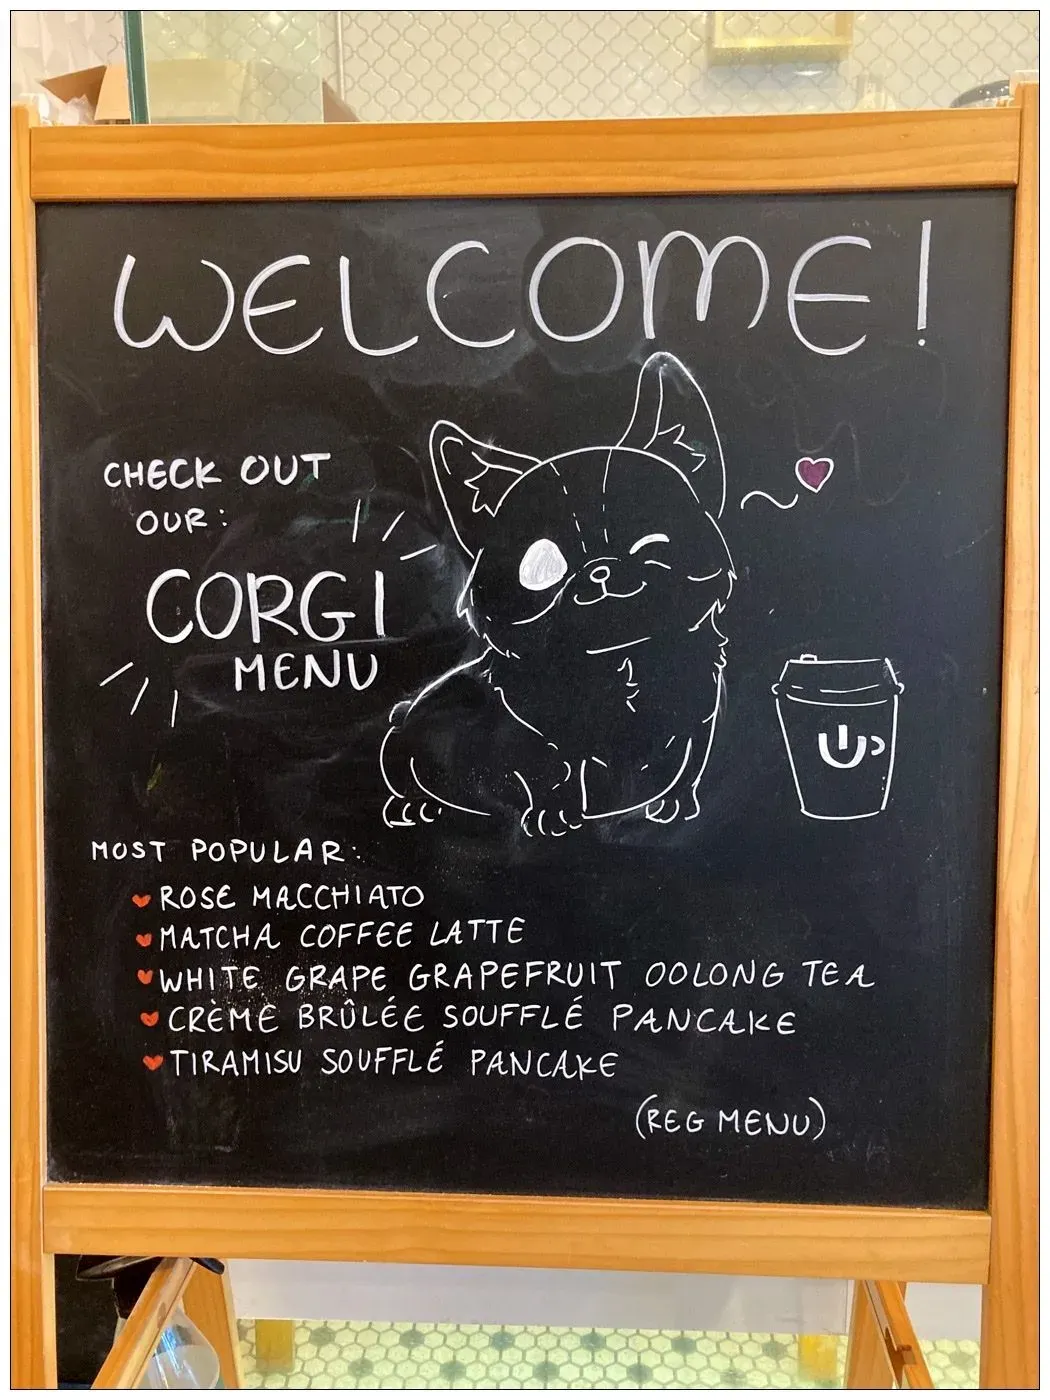 WELCOME!
CHECK OUT
OUR:
CORGI
MENU
MOST POPULAR:
ROSE MACCHIATO
MATCHA COFFEE LATTE
WHITE GRAPE GRAPEFRUIT OOLONG TEA
CRÈME BRÛLÉE SOUFFLÉ PANCAKE
TIRAMISU SOUFFLÉ PANCAKE
(REG MENU)